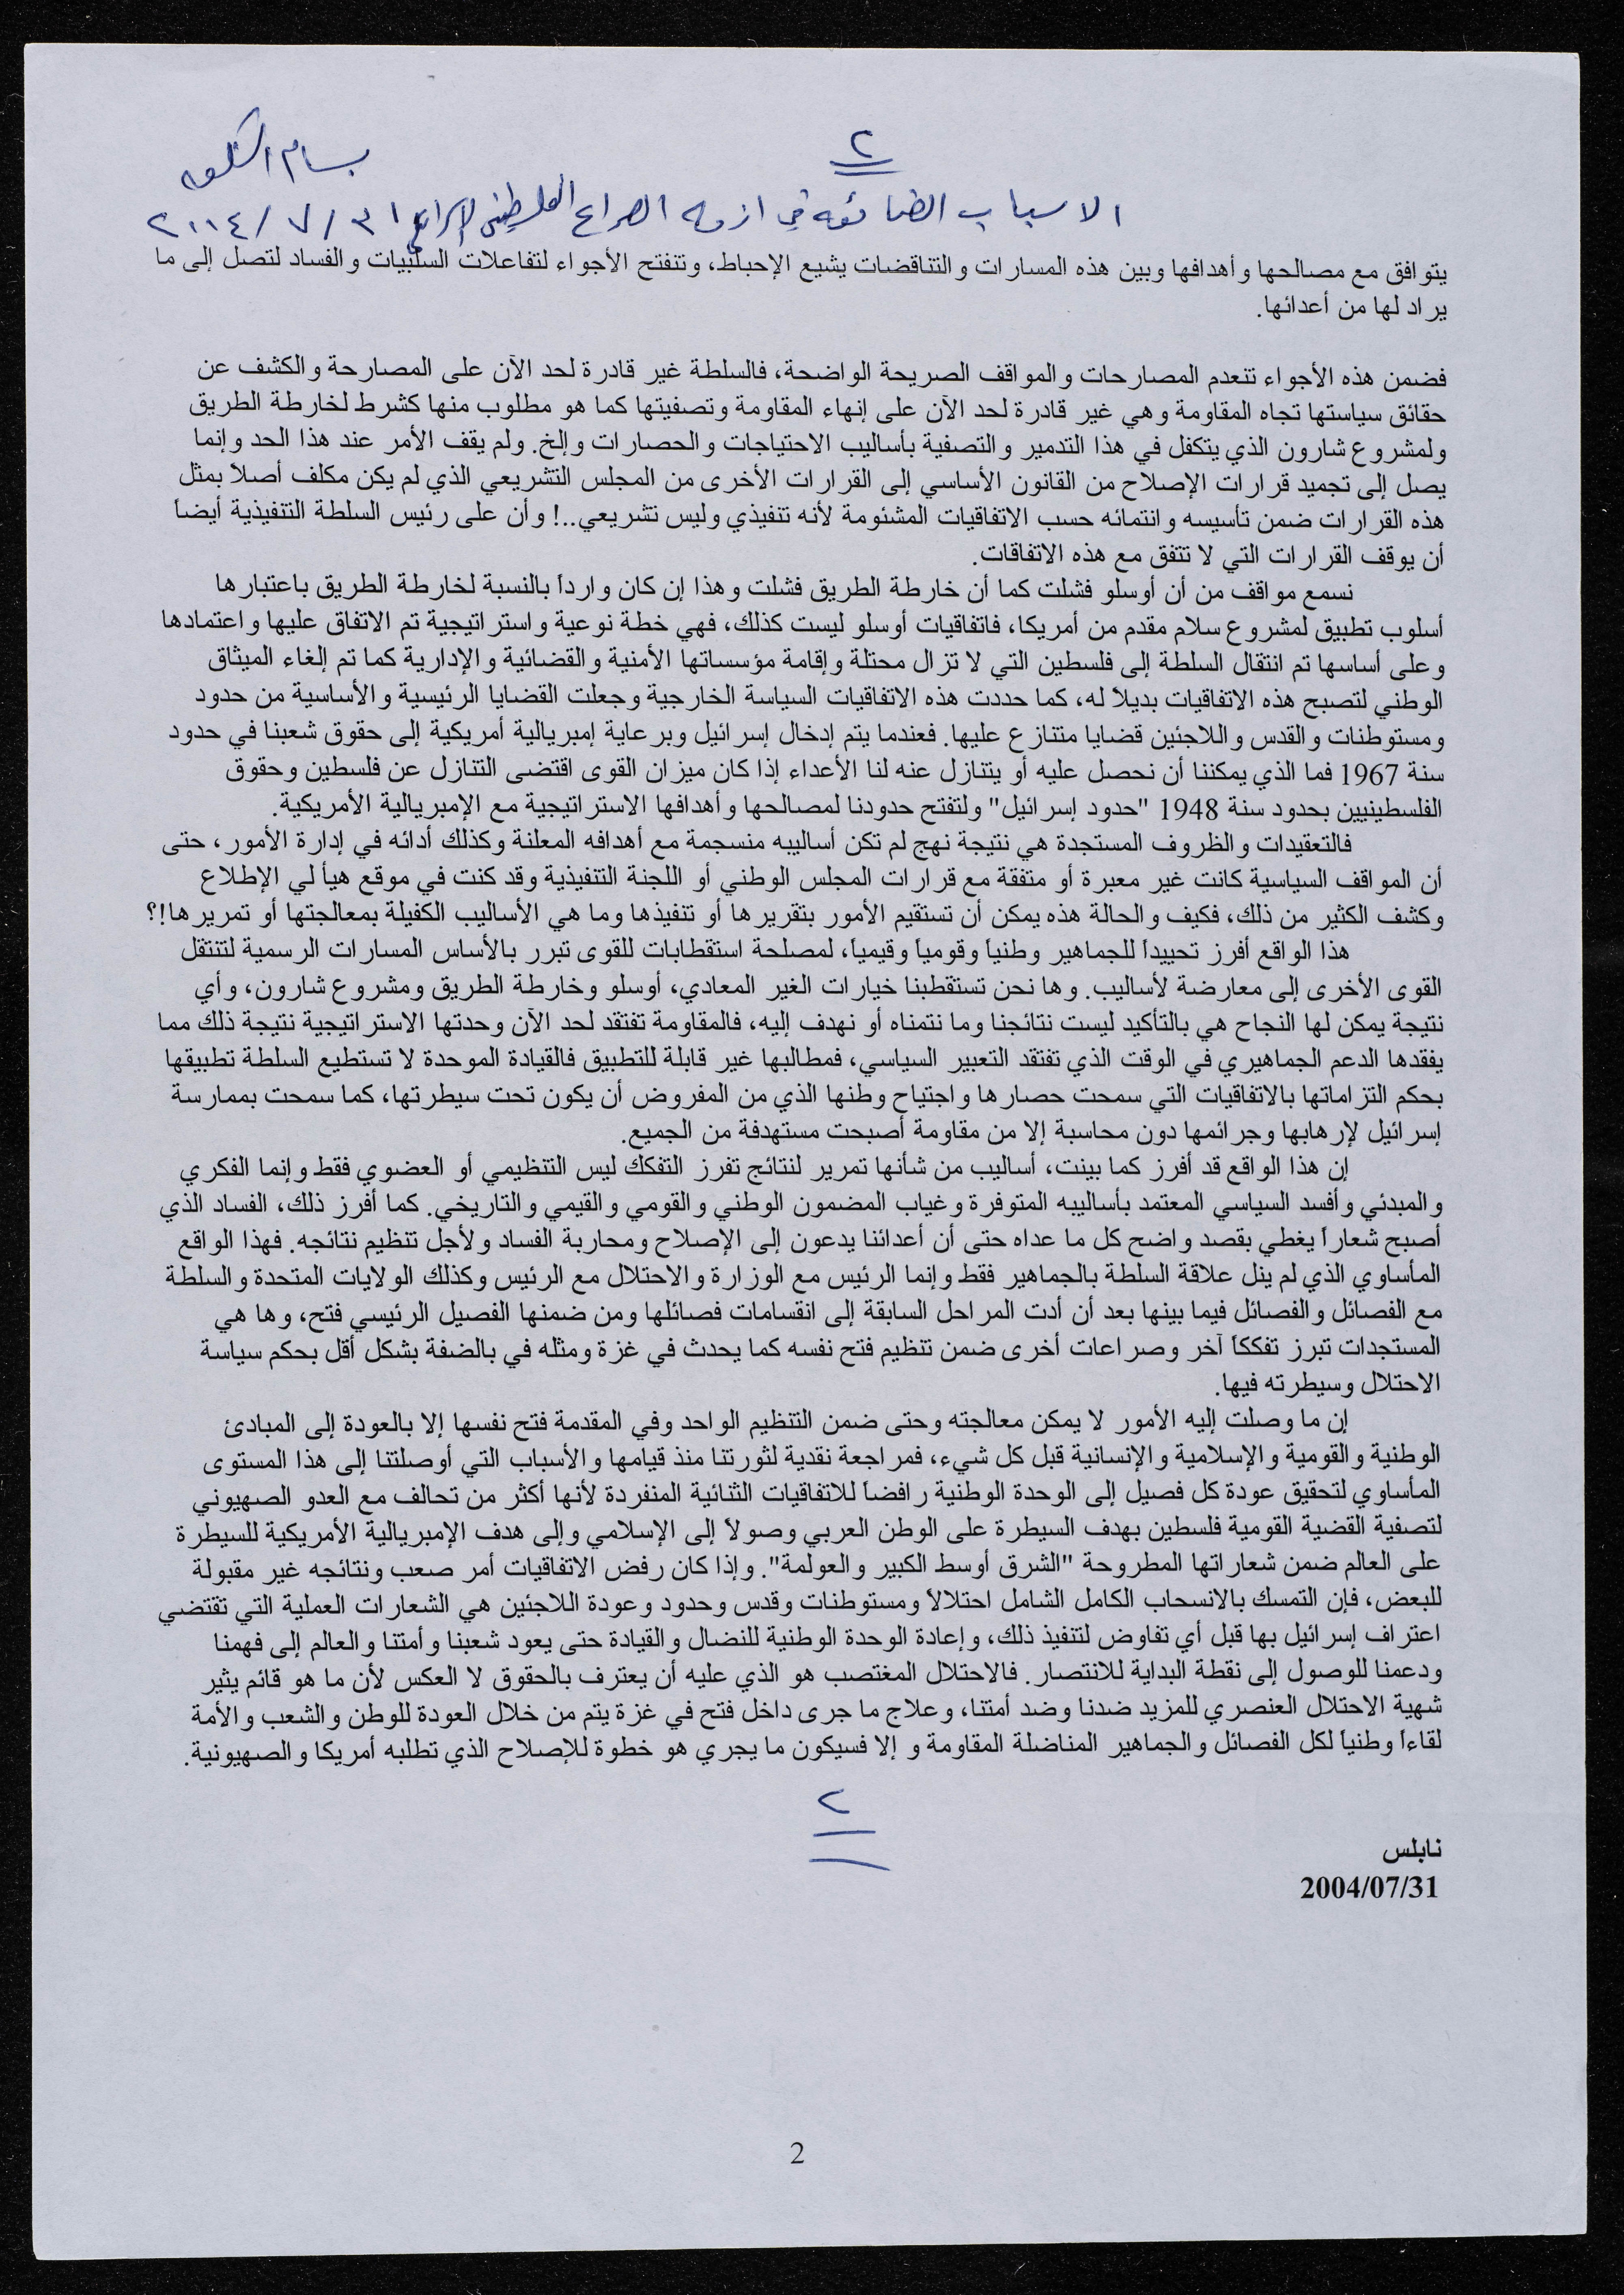 ٢
بسام الشكعه
الاسباب الضائعه في ازمه الصراع الفلسطيني الاسرائيلي ٣١/٧/٢٠٠٤
يتوافق مع مصالحها وأهدافها وبين هذه المسارات والتناقضات يشيع الإحباط، وتنفتح الأجواء لتفاعلات السلبيات والفساد لتصل إلى ما
يراد لها من أعدائها.
فضمن هذه الأجواء تنعدم المصارحات والمواقف الصريحة الواضحة، فالسلطة غير قادرة لحد الآن على المصارحة والكشف عن
حقائق سياستها تجاه المقاومة وهي غير قادرة لحد الآن على إنهاء المقاومة وتصفيتها كما هو مطلوب منها كشرط لخارطة الطريق
ولمشروع شارون الذي يتكفل في هذا التدمير والتصفية بأساليب الاحتياجات والحصارات وإلخ. ولم يقف الأمر عند هذا الحد وإنما
يصل إلى تجميد قرارات الإصلاح من القانون الأساسي إلى القرارات الأخرى من المجلس التشريعي الذي لم يكن مكلف أصلاً بمثل
هذه القرارات ضمن تأسيسه وانتمائه حسب الاتفاقيات المشئومة لأنه تنفيذي وليس تشريعي..! وأن على رئيس السلطة التنفيذية أيضاً
أن يوقف القرارات التي لا تتفق مع هذه الاتفاقات.
نسمع مواقف من أن أوسلو فشلت كما أن خارطة الطريق فشلت وهذا إن كان وارداً بالنسبة لخارطة الطريق باعتبارها
أسلوب تطبيق لمشروع سلام مقدم من أمريكا، فاتفاقيات أوسلو ليست كذلك، فهي خطة نوعية واستراتيجية تم الاتفاق عليها واعتمادها
وعلى أساسها تم انتقال السلطة إلى فلسطين التي لا تزال محتلة وإقامة مؤسساتها الأمنية والقضائية والإدارية كما تم إلغاء الميثاق
الوطني لتصبح هذه الاتفاقيات بديلاً له، كما حددت هذه الاتفاقيات السياسة الخارجية وجعلت القضايا الرئيسية والأساسية من حدود
ومستوطنات والقدس واللاجئين قضايا متنازع عليها. فعندما يتم إدخال إسرائيل وبرعاية إمبريالية أمريكية إلى حقوق شعبنا في حدود
سنة 1967 فما الذي يمكننا أن نحصل عليه أو يتنازل عنه لنا الأعداء إذا كان ميزان القوى اقتضى التنازل عن فلسطين وحقوق
الفلسطينيين بحدود سنة 1948 "حدود إسرائيل" ولتفتح حدودنا لمصالحها وأهدافها الاستراتيجية مع الإمبريالية الأمريكية.
فالتعقيدات والظروف المستجدة هي نتيجة نهج لم تكن أساليبه منسجمة مع أهدافه المعلنة وكذلك أدائه في إدارة الأمور، حتى
أن المواقف السياسية كانت غير معبرة أو متفقة مع قرارات المجلس الوطني أو اللجنة التنفيذية وقد كنت في موقع هيأ لي الإطلاع
وكشف الكثير من ذلك، فكيف والحالة هذه يمكن أن تستقيم الأمور بتقريرها أو تنفيذها وما هي الأساليب الكفيلة بمعالجتها أو تمريرها!؟
هذا الواقع أفرز تحييداً للجماهير وطنياً وقومياً وقيمياً، لمصلحة استقطابات للقوى تبرر بالأساس المسارات الرسمية لتنتقل
القوى الأخرى إلى معارضة لأساليب. وها نحن تستقطبنا خيارات الغير المعادي، أوسلو وخارطة الطريق ومشروع شارون، وأي
نتيجة يمكن لها النجاح هي بالتأكيد ليست نتائجنا وما نتمناه أو نهدف إليه، فالمقاومة تفتقد لحد الآن وحدتها الاستراتيجية نتيجة ذلك مما
يفقدها الدعم الجماهيري في الوقت الذي تفتقد التعبير السياسي، فمطالبها غير قابلة للتطبيق فالقيادة الموحدة لا تستطيع السلطة تطبيقها
بحكم التزاماتها بالاتفاقيات التي سمحت حصارها واجتياح وطنها الذي من المفروض أن يكون تحت سيطرتها، كما سمحت بممارسة
إسرائيل لإرهابها وجرائمها دون محاسبة إلا من مقاومة أصبحت مستهدفة من الجميع.
إن هذا الواقع قد أفرز كما بينت، أساليب من شأنها تمرير لنتائج تفرز التفكك ليس التنظيمي أو العضوي فقط وإنما الفكري
والمبدئي وأفسد السياسي المعتمد بأساليبه المتوفرة وغياب المضمون الوطني والقومي والقيمي والتاريخي. كما أفرز ذلك، الفساد الذي
أصبح شعاراً يغطي بقصد واضح كل ما عداه حتى أن أعدائنا يدعون إلى الإصلاح ومحاربة الفساد ولأجل تنظيم نتائجه. فهذا الواقع
المأساوي الذي لم ينل علاقة السلطة بالجماهير فقط وإنما الرئيس مع الوزارة والاحتلال مع الرئيس وكذلك الولايات المتحدة والسلطة
مع الفصائل والفصائل فيما بينها بعد أن أدت المراحل السابقة إلى انقسامات فصائلها ومن ضمنها الفصيل الرئيسي فتح، وها هي
المستجدات تبرز تفككاً آخر وصراعات أخرى ضمن تنظيم فتح نفسه كما يحدث في غزة ومثله في بالضفة بشكل أقل بحكم سياسة
الاحتلال وسيطرته فيها.
إن ما وصلت إليه الأمور لا يمكن معالجته وحتى ضمن التنظيم الواحد وفي المقدمة فتح نفسها إلا بالعودة إلى المبادئ
الوطنية والقومية والإسلامية والإنسانية قبل كل شيء، فمراجعة نقدية لثورتنا منذ قيامها والأسباب التي أوصلتنا إلى هذا المستوى
المأساوي لتحقيق عودة كل فصيل إلى الوحدة الوطنية رافضاً للاتفاقيات الثنائية المنفردة لأنها أكثر من تحالف مع العدو الصهيوني
لتصفية القضية القومية فلسطين بهدف السيطرة على الوطن العربي وصولاً إلى الإسلامي وإلى هدف الإمبريالية الأمريكية للسيطرة
على العالم ضمن شعاراتها المطروحة "الشرق أوسط الكبير والعولمة". وإذا كان رفض الاتفاقيات أمر صعب ونتائجه غير مقبولة
للبعض، فإن التمسك بالانسحاب الكامل الشامل احتلالاً ومستوطنات وقدس وحدود وعودة اللاجئين هي الشعارات العملية التي تقتضي
اعتراف إسرائيل بها قبل أي تفاوض لتنفيذ ذلك، وإعادة الوحدة الوطنية للنضال والقيادة حتى يعود شعبنا وأمتنا والعالم إلى فهمنا
ودعمنا للوصول إلى نقطة البداية للانتصار. فالاحتلال المغتصب هو الذي عليه أن يعترف بالحقوق لا العكس لأن ما هو قائم يثير
شهية الاحتلال العنصري للمزيد ضدنا وضد أمتنا، وعلاج ما جرى داخل فتح في غزة يتم من خلال العودة للوطن والشعب والأمة
لقاءاً وطنياً لكل الفصائل والجماهير المناضلة المقاومة و إلا فسيكون ما يجري هو خطوة للإصلاح الذي تطلبه أمريكا والصهيونية.
٢
نابلس
2004/07/31
2